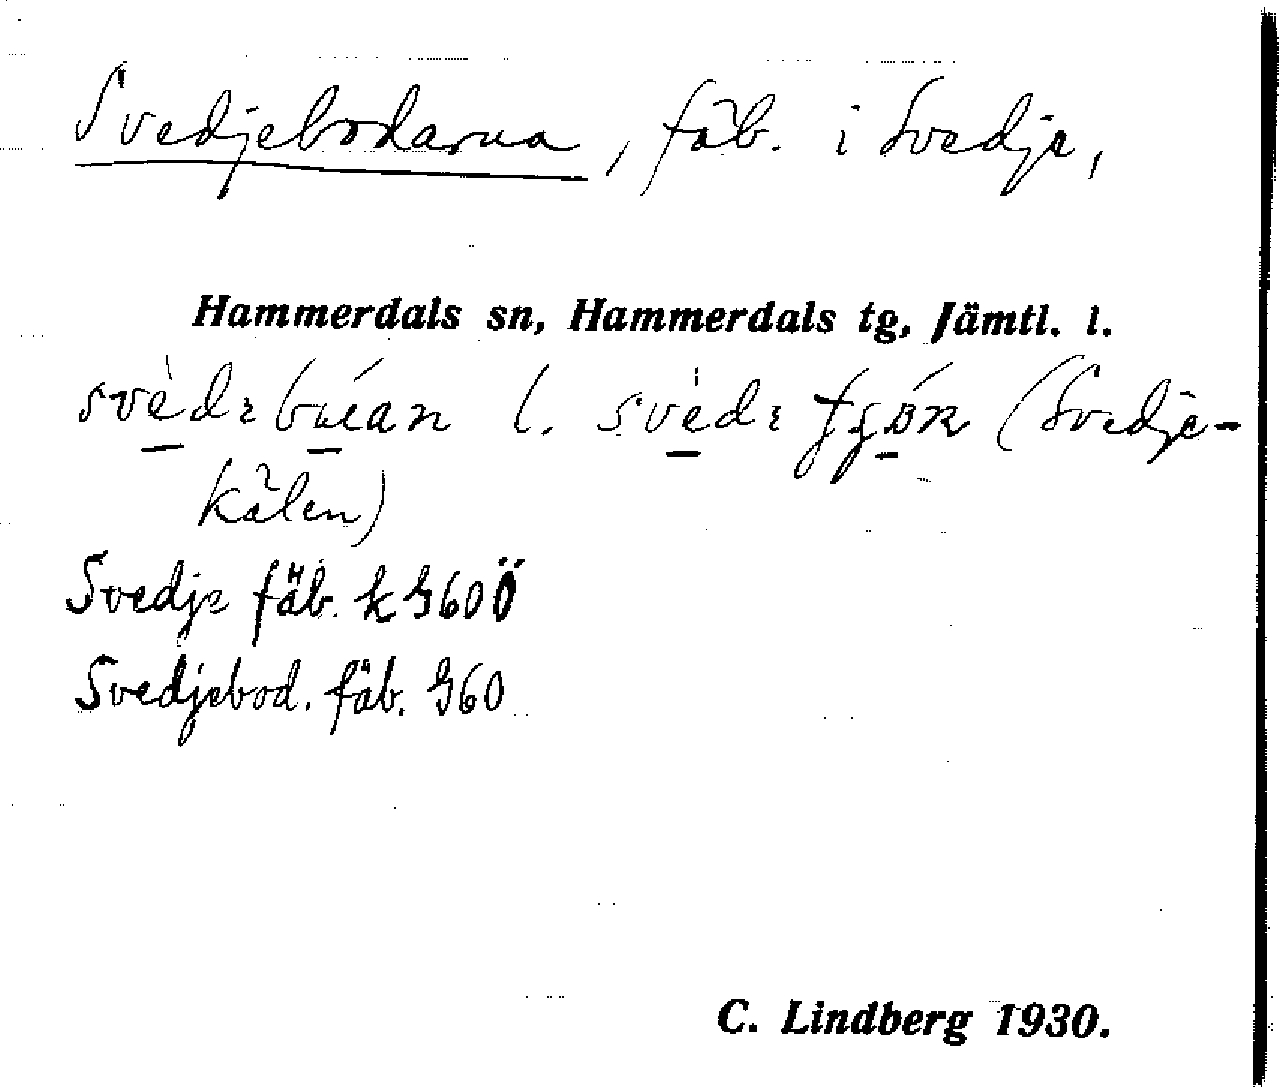 Svedjebodarna, fäb. i Svedje,
Hammerdals sn, Hammerdals tg, Jämtl. l.
l. (Svedje-
kälen)
Svedje fäb. k G60 Ö
Svedjebod. fäb. G60
C. Lindberg 1930.